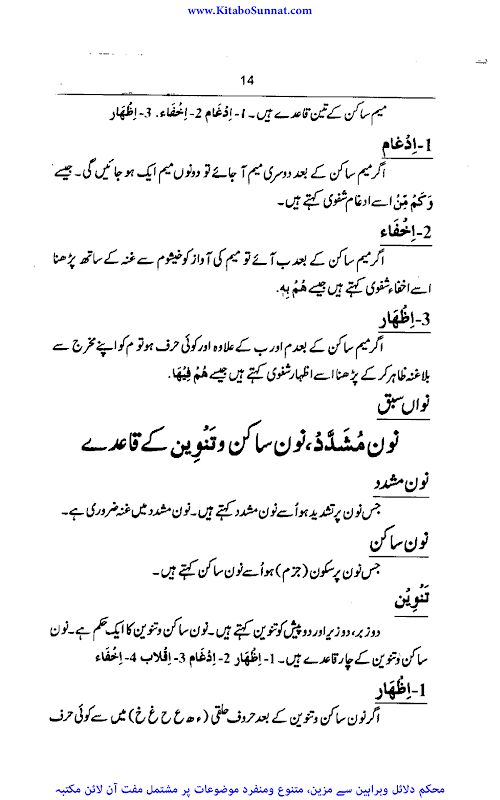 www.KitaboSunnat.com
14
میم ساکن کے تین قاعدے ہیں۔ 1- اِدْغَام 2- اِخْفَاء۔ 3- اِظْهَار
1-اِدْغَام
اگر میم ساکن کے بعد دوسری میم آ جائے تو دونوں میم ایک ہو جائیں گی۔ جیسے
وَكَمْ مِّنْ اسے ادغام شفوی کہتے ہیں۔
2-اِخْفَاء
اگر میم ساکن کے بعد ب آئے تو میم کی آواز کو خیشوم سے غنہ کے ساتھ پڑھنا
اسے اخفاء شفوی کہتے ہیں جیسے هُمْ بِهِ.
3-اِظْهَار
اگر میم ساکن کے بعد م اور ب کے علاوہ اور کوئی حرف ہو تو م کو اپنے مخرج سے
بلا غنہ ظاہر کر کے پڑھنا اسے اظہار شفوی کہتے ہیں جیسے هُمْ فِيْهَا.
نواں سبق
نون مُشَدَّدْ، نون ساکن و تَنْوِین کے قاعدے
نون مشدد
جس نون پر تشدید ہو اُسے نون مشدد کہتے ہیں۔ نون مشدد میں غنہ ضروری ہے۔
نون ساکن
جس نون پر سکون (جزم) ہو اُسے نون ساکن کہتے ہیں۔
تَنْوِیْن
دو زبر، دو زیر اور دو پیش کو تنوین کہتے ہیں۔ نون ساکن و تنوین کا ایک حکم ہے۔ نون
ساکن و تنوین کے چار قاعدے ہیں۔ 1- اِظْهَار 2- اِدْغَام 3- اِقْلاب 4- اِخْفَاء
1-اِظْهَار
اگر نون ساکن و تنوین کے بعد حروف حلقی (ء ھ ع ح غ خ) میں سے کوئی حرف
محکم دلائل وبراہین سے مزین، متنوع ومنفرد موضوعات پر مشتمل مفت آن لائن مکتبہ